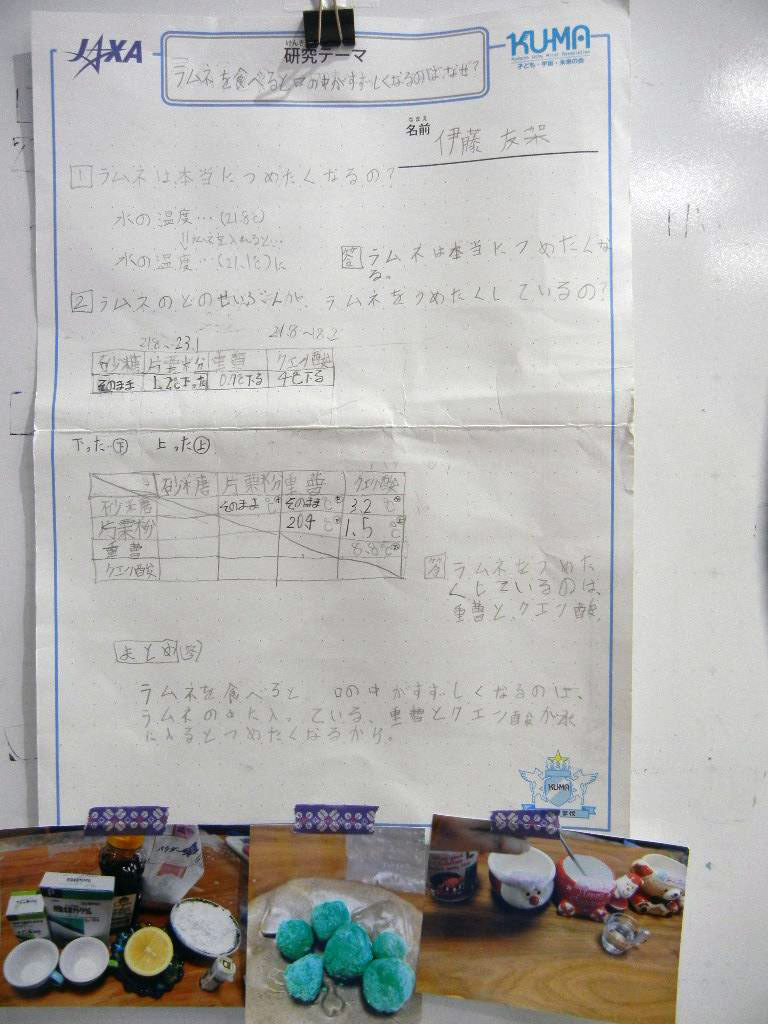 JAXA
けんきゅう
研究テーマ
KU-MA
子ども・宇宙・未来の会
ラムネを食べると口の中がすずしくなるのは、なぜ?
なまえ
名前 伊藤 友
1 ラムネは、本当につめたくなるの?
水の温度…(21.8℃)
⇓ラムネを入れると…
水の温度…(21.1℃)に
答 ラムネは本当につめたくな
る。
2 ラムネのどのせいぶんが、ラムネをつめたくしているの?
21.8〜23.1
21.8〜18.2
砂糖 片栗粉 重曹 クエン酸
そのまま 1.2℃下った 0.7℃下る 4℃下る
下った…下 上った上
砂糖 片栗粉 重曹 クエン酸
砂糖 そのまま℃ そのまま℃ 3.2℃
片栗粉 20.4℃ 1.5℃
重曹 8.8℃
クエン酸
答 ラムネをつめた
くしているのは、
重曹と、クエン酸。
まとめ(答)
ラムネを食べると、口の中がすずしくなるのは、
ラムネの中に入っている、重曹とクエン酸が水
に入るとつめたくなるから。
KUMA